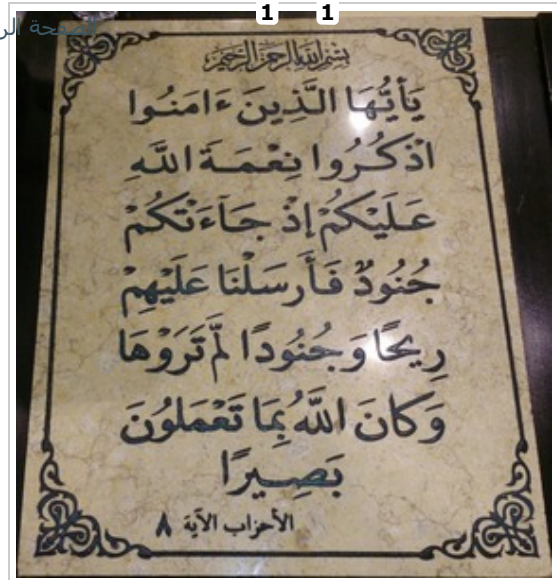 1 1
بسم الله الرحمن الرحيم
يَٰأَيُّهَا الَّذِينَ ءَامَنُوا
اذْكُرُوا نِعْمَةَ اللَّهِ
عَلَيْكُمْ إِذْ جَاءَتْكُمْ
جُنُودٌ فَأَرْسَلْنَا عَلَيْهِمْ
رِيحًا وَجُنُودًا لَّمْ تَرَوْهَا
وَكَانَ اللَّهُ بِمَا تَعْمَلُونَ
بَصِيرًا
الأحزاب الآية ٨